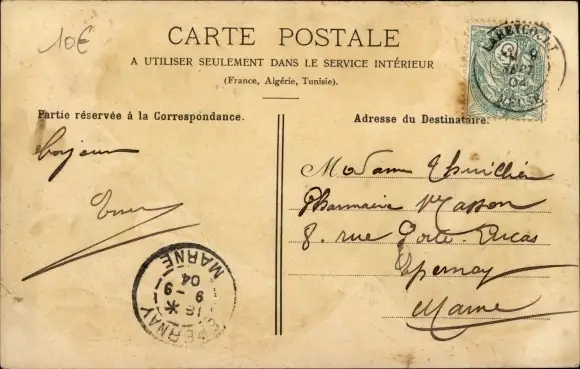 10€
CARTE POSTALE
A UTILISER SEULEMENT DANS LE SERVICE INTÉRIEUR
(France, Algérie, Tunisie).
Partie réservée à la Correspondance.
Adresse du Destinataire.
bonjour
Madame Thuillier
Pharmacie Masson
8. rue Porte Lucas
Epernay
Marne
EPERNAY
18
9 - 9
04
MARNE
04
MEUSE